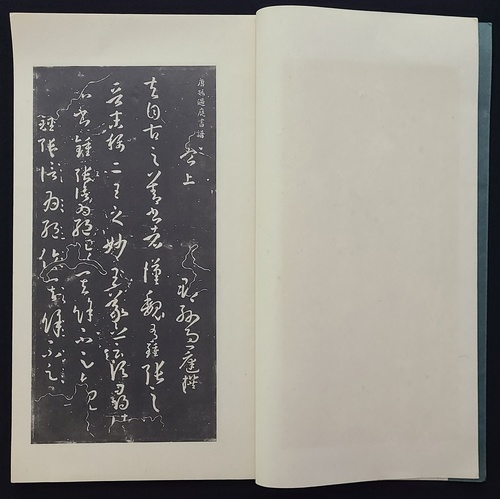 唐孫過庭書譜
卷上
郡孫過庭撰
夫自古之善書者漢魏有鍾張之
晉末稱二王之妙王羲之云頃尋諸
名書鍾張信為絕其餘不足觀
鍾張信為絕倫其餘不足